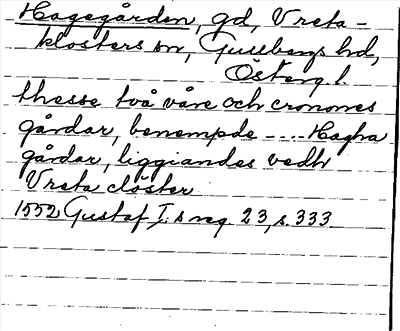 Hagegården, gd, Vreta-
klosters sn, Gullbergs hd,
Österg. l.
thesse två våre och cronones
gårdar, benempde ---- Hagha
gårdar, liggiandes vedh
Vreta clöster
1552 Gustaf I:s reg. 23, s. 333